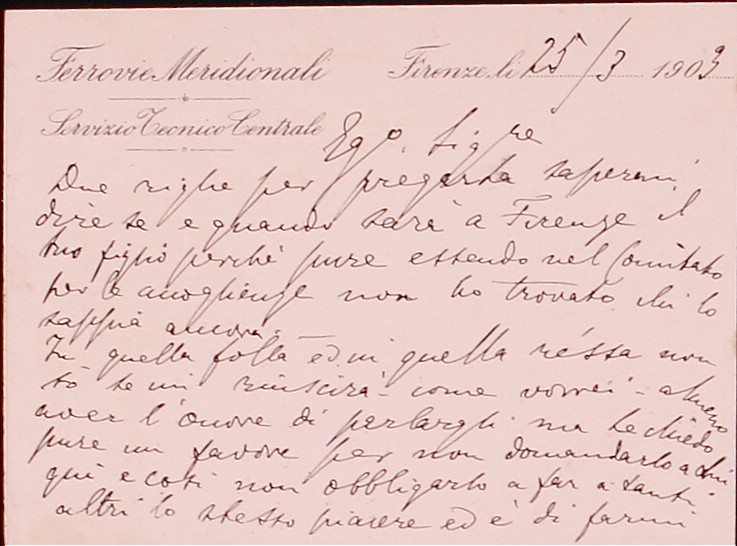 Ferrovie Meridionali Firenze, li 25/3 1903
Servizio Tecnico Centrale
Egº Sigre
Due righe per pregarla sapermi
dire se e quando sarà a Firenze il
suo figlio perchè pure essendo nel Comitato
per le accoglienze non ho trovato chi lo
sappia ancora.
In quella folla ed in quella ressa non
so se mi riuscirà - come vorrei - almeno
aver l'onore di parlargli ma le chiedo
pure un favore per non domandarlo a Lui
qui e così non obbligarlo a far a tanti
altri lo stesso piacere ed è di farmi